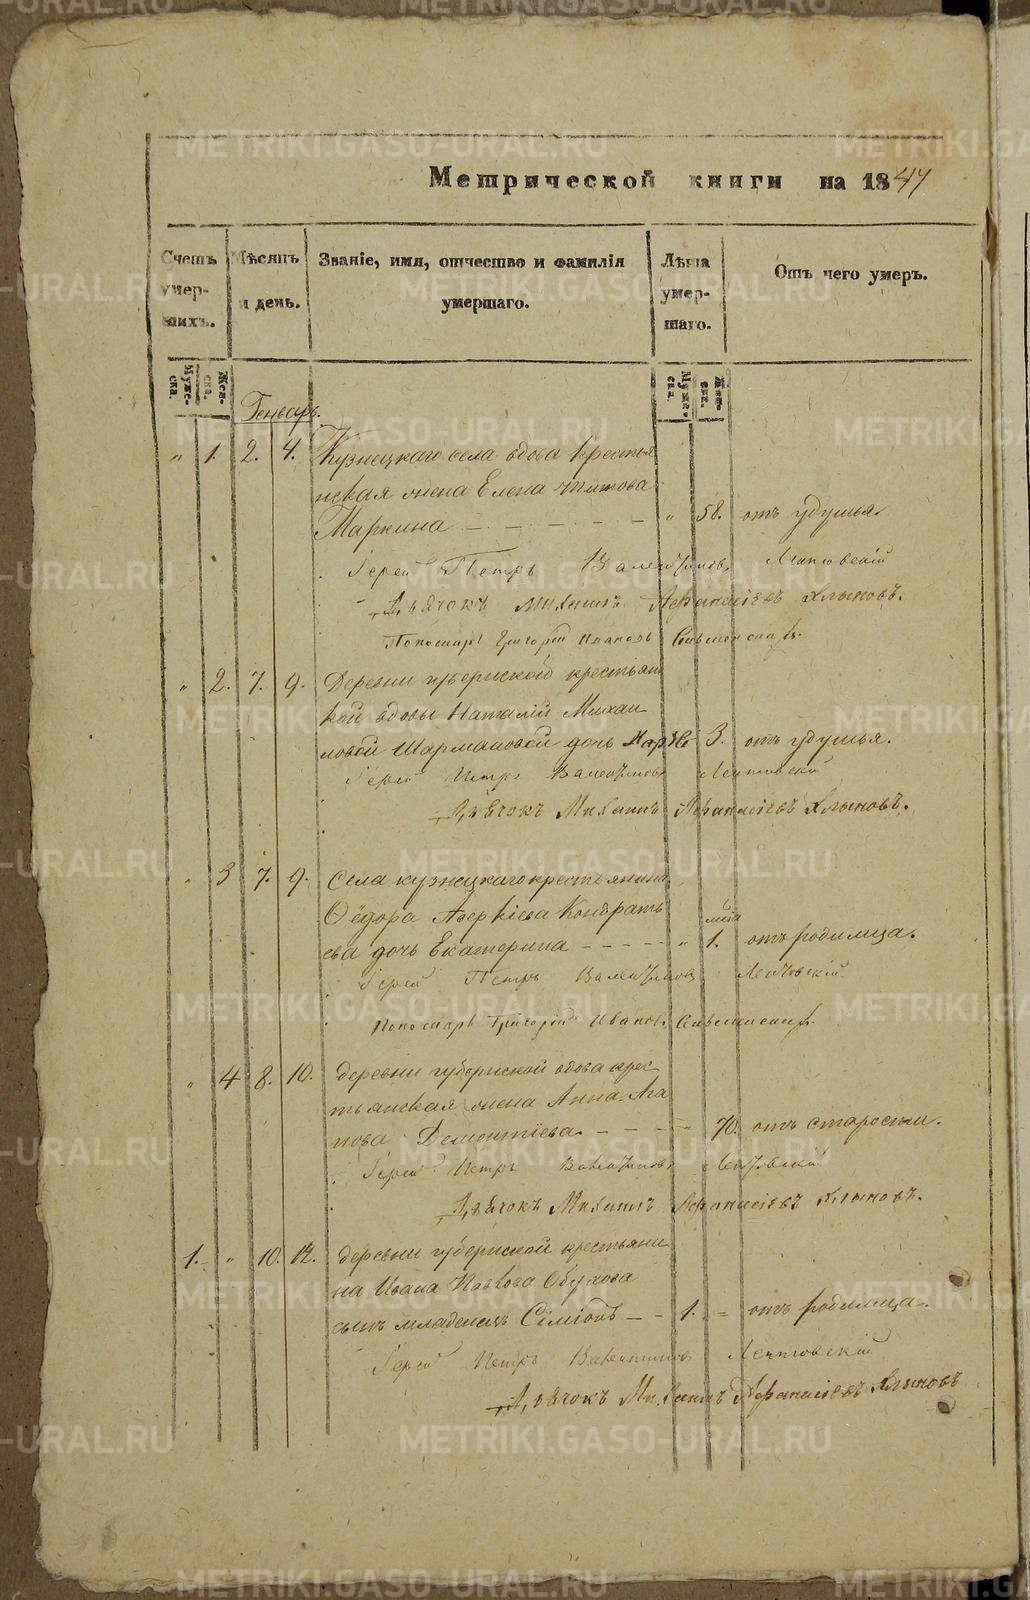 Метрической книги на 1847
Счетъ умер-шихъ.
Мѣсяцъ и день.
Званіе, имя, отчество и фамилія умершаго.
Лѣта умер-шаго.
Отъ чего умеръ.
Муже-ска.
Жен-ска.
Муже-ска.
Жен-ска.
Генварь.
" 1. 2. 4. Кузнецкаго села вдова крестья
нская жена Елена Титова
Маркина " 58. отъ удушья.
Іерей Петръ Валентиновъ
Дьячокъ Михаилъ Афанасіевъ Хлыновъ.
Пономарь Григорій Ивановъ
" 2. 7. 9. Деревни губернской крестьян
кой вдовы Наталіи Михаи
ловой Шармановой дочь 3. отъ удушья.
Іерей Петръ Валентиновъ
Дьячокъ Михаилъ Афанасіевъ Хлыновъ.
" 3 7. 9. Села кузнецкаго крестьянина
Ѳёдора Аверкіева Кондрать
ева дочь Екатерина " 1. отъ родимца.
Іерей Петръ Валентиновъ
Пономарь Григорій Ивановъ
" 4 8. 10. деревни губернской вдова крес
тьянская жена Анна Ага
пова Дементіева " 70. отъ старости.
Іерей Петръ Валентиновъ
Дьячокъ Михаилъ Афанасіевъ Хлыновъ.
1. " 10. 12. деревни губернской крестьяни
на Ивана Павлова Обухова
сынъ младенецъ Сімеонъ 1. отъ родимца.
Іерей Петръ Валентиновъ
Дьячокъ Михаилъ Афанасіевъ Хлыновъ
METRIKI.GASO-URAL.RU